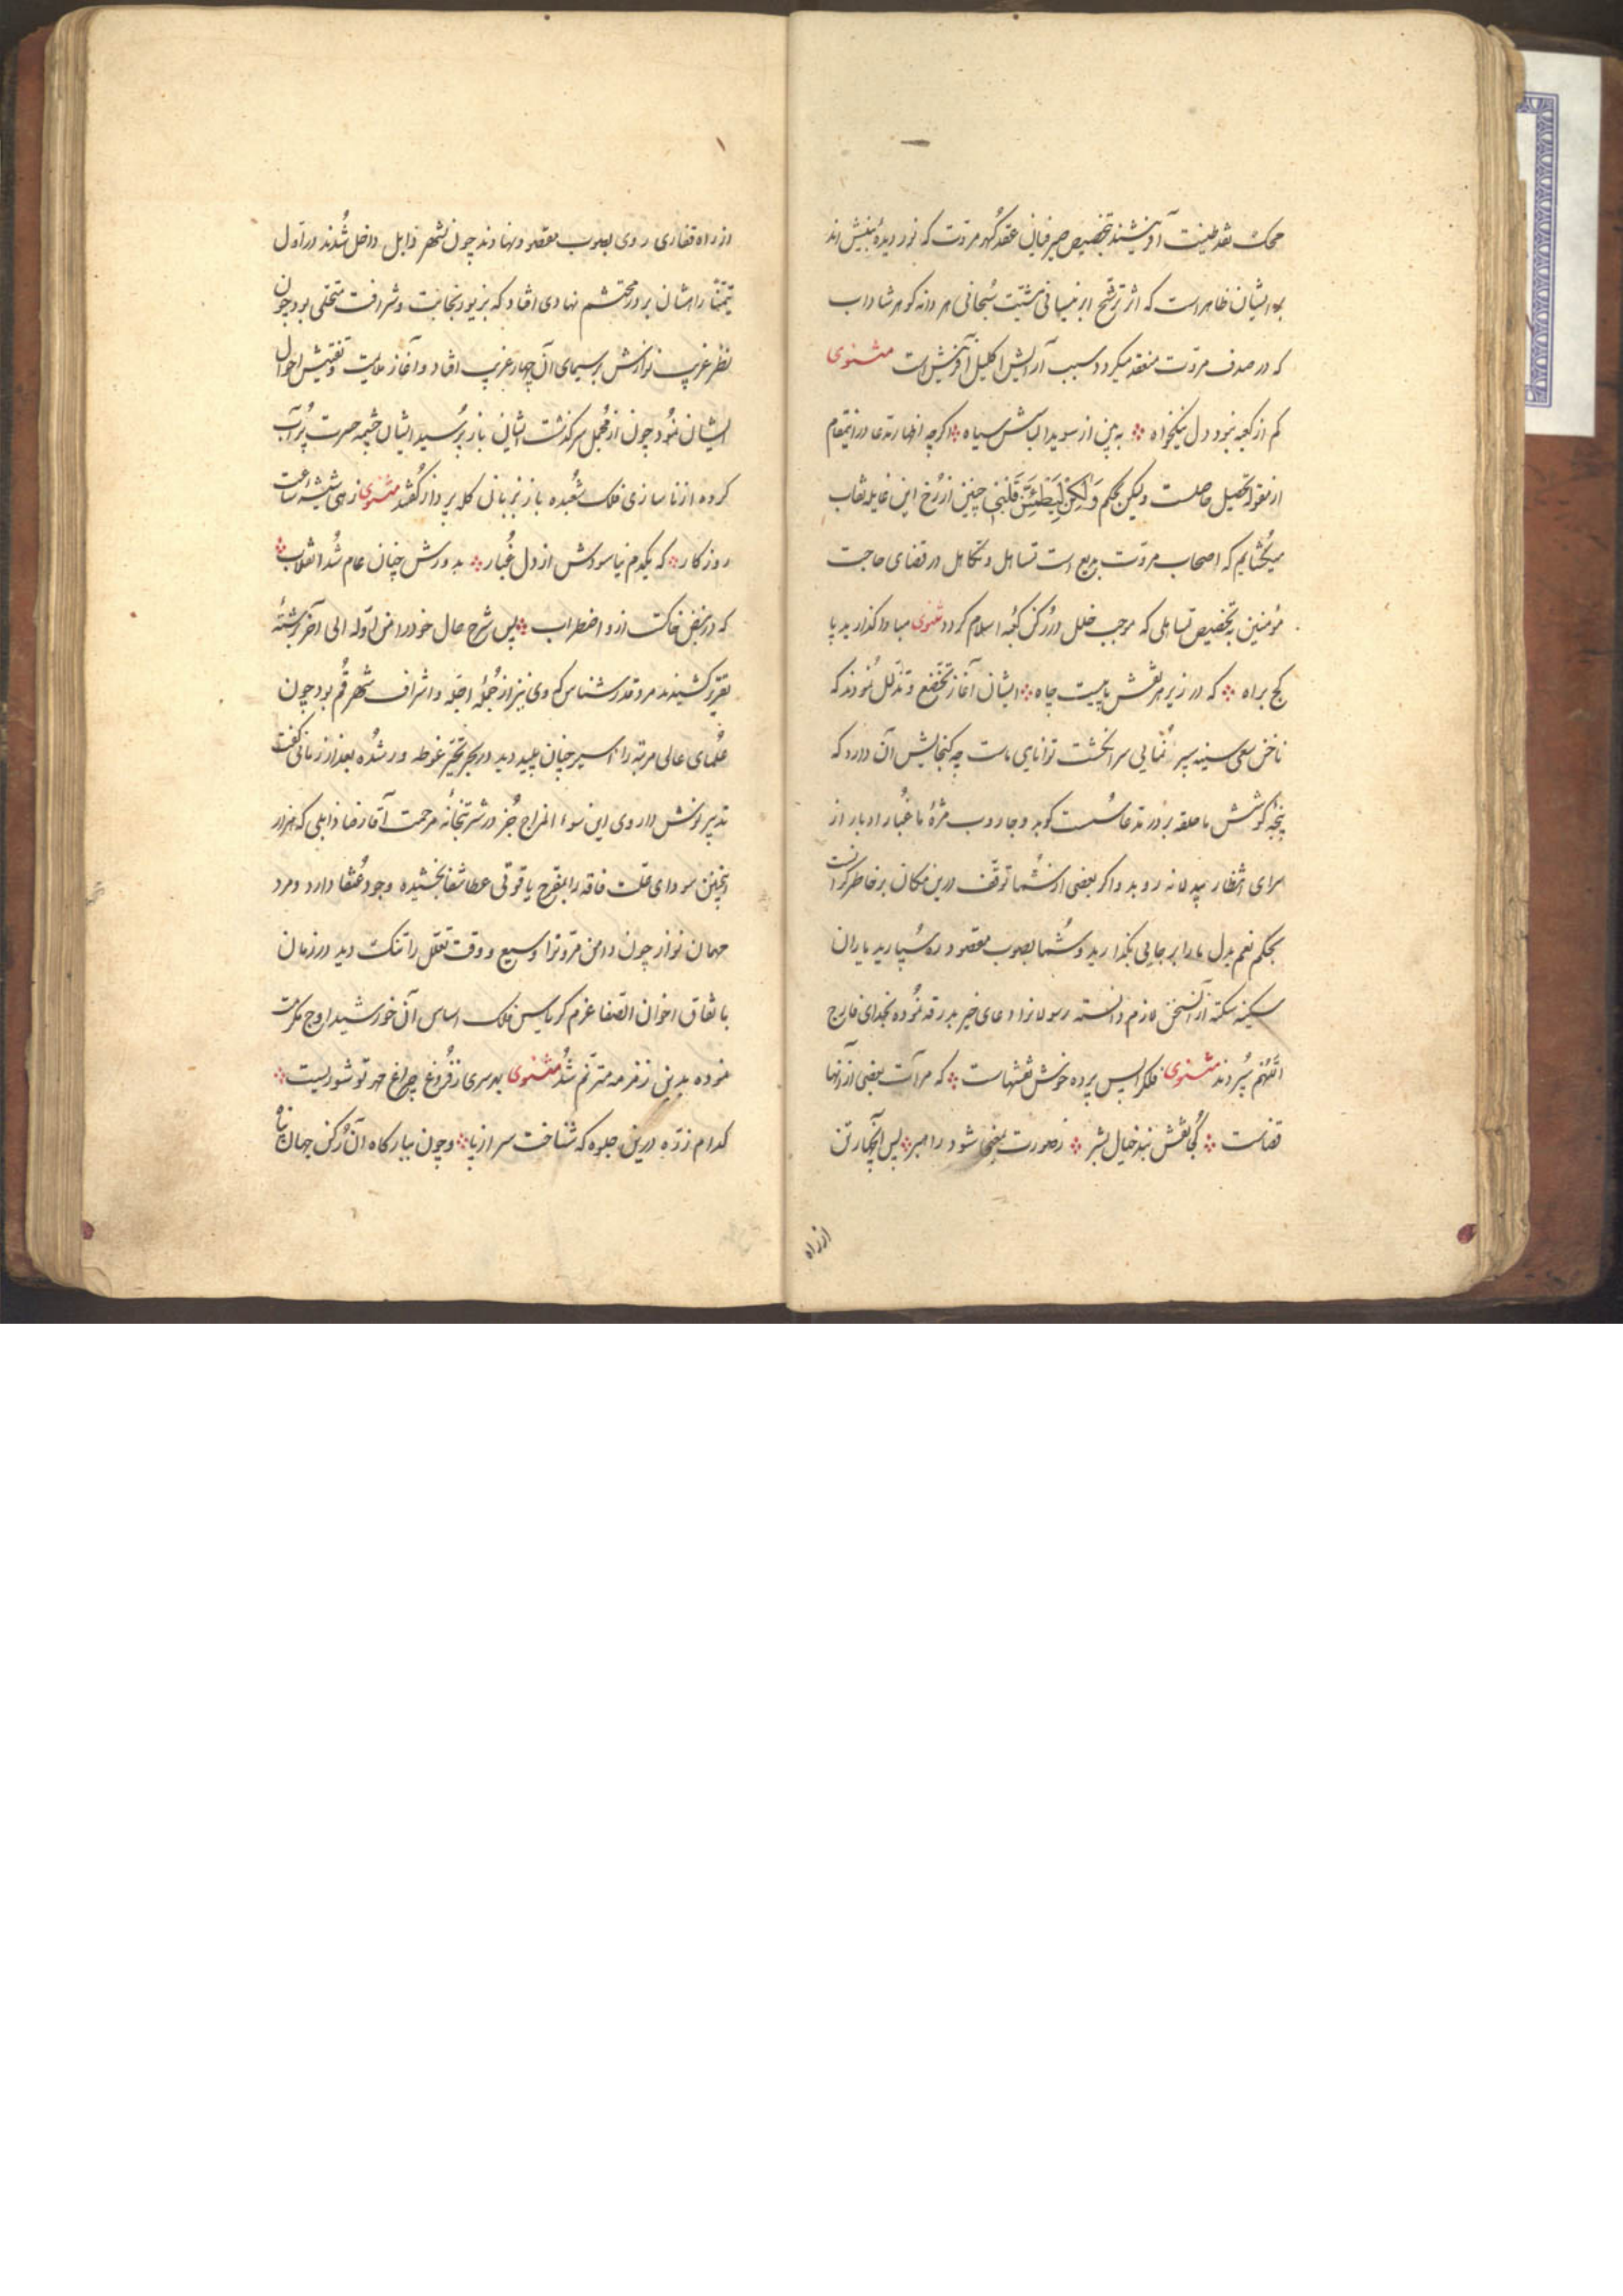 محک نقد طینت آفرینشند بتخصیص صیرفیان عقد گهر مروّت که نور دیدهٔ بینش اند
بر ایشان ظاهر است که اثر ترشح ابر نیسانی مشیّت سُبحانی هر دانه گوهر شاداب
که در صدف مروّت منعقد میکردد سبب آرایش اکلیل آفرینش است مثنوی
کم از کعبه نبود دل نیکخواه ؞ به بین از سویدا لباسش سیاه ؞ اکرچه اظهار مدعا درین مقام
از مقولهٔ تحصیل حاصلست ولیکن بحکم وَلٰکِنْ لِیَطْمَئِنَّ قَلْبِی چنین از رُخ این نقاب
میکُشایم که اصحاب مروّت بدیع است تساهل و تکاهل در قضای حاجت
مؤمنین به تخصیص تساهلی که موجب خلل در رُکن کعبهٔ اسلام کردد مثنوی مبادا کذارید پا
کج براه ؞ که در زیر هر نقش پا نیست چاه ؞ ایشان آغاز تخضع و تذلّل نُمودند که
ناخن سعی سینه سپر نُمایی سر انکشت توانایی ماست چه کنجایش آن دارد که
پنجهٔ کوشش ما حلقه بر در مدعا سُست کوبد و جاروب مژهٔ ما غُبار ادبار از
سرای انتظار بیدلانه روبد و اکر بعضی از شُما توقّف درین مکان بر خاطر کران است
بحکم نعم بدل ما را بر جایی بگذارید و شُما بصوب مقصود ره سُپارید یاران
سکینه سکته از آن سخن لازم دانسته رسولانرا دعای خیر بدرقه نُموده بخدای فارج
الهّم سُپردند مثنوی فلک را پس پرده خوش نقشهاست ؞ که مرآت بعضی از آنها
قضاست ؞ کجا نقش بندِ خیال بشر ؞ ز صورت بمعنی شود راهبر ؞ پس آنچهار تن
از راه
از راه قفاری روی بصوب مقصد نهادند چون بشهر ذابل داخل شُدند در اوّل
تمنّا راهشان بر در محتشم نهادی افتاد که بزیور نجابت و شرافت متحلّی بود چون
نظر غریب نوازش بر سیمای آن چهار غریب افتاد و آغاز ملایمت و تفتیش احوال
ایشان نمُود چون از مُجمل سرکذشت ایشان باز پُرسید ایشان چشمه حسرت پُر آب
کرده از ناسازی فلک شعبده باز بزبانی کله پرداز کُشتند مثنوی زهی شیشهٔ ساعت
روزکار ؞ که یکدم نیاسودش از دل غُبار ؞ بدورش چنان عام شُد انقلاب ؞
که در نبض خاکست ازو اضطراب ؞ پس شرح حال خود را من اوّله الی آخر برشتهٔ
تقریر کشیدند مرد قدر شناس که وی نیز از جُملهٔ اجلّه و اشراف شهر قُم بود چون
عُلمای عالی مرتبه را اسیر چنان پلیید دید در بحر تحیّر غوطه ور شُده بعد از زمانی گفت
تدبیر نوش داروی این سوء المزاج جُز در شربتخانهٔ مرحمت آقا رضا ذابلی که هزار
اینچنین سودای علّت فاقه را بمفرح یاقوتی عطا شفا بخشیده وجود عُنقا دارد و مرد
مهمان نواز چون دامن مروّترا وسیع و وقت تعقل را تنک دید در زمان
باتفاق اخوان الصّفا عزم کریاس فلک اساس آن خورشید اوج مکرمت
نموده بدین زمزمه مترنّم شُد مثنوی بهر سری ز فُروغ چراغ مهر تو شوریست ؞
کدام ذرّه درین جلوه که شناخت سر از پا ؞ و چون ببارکاه آن رُکن جهان پناه